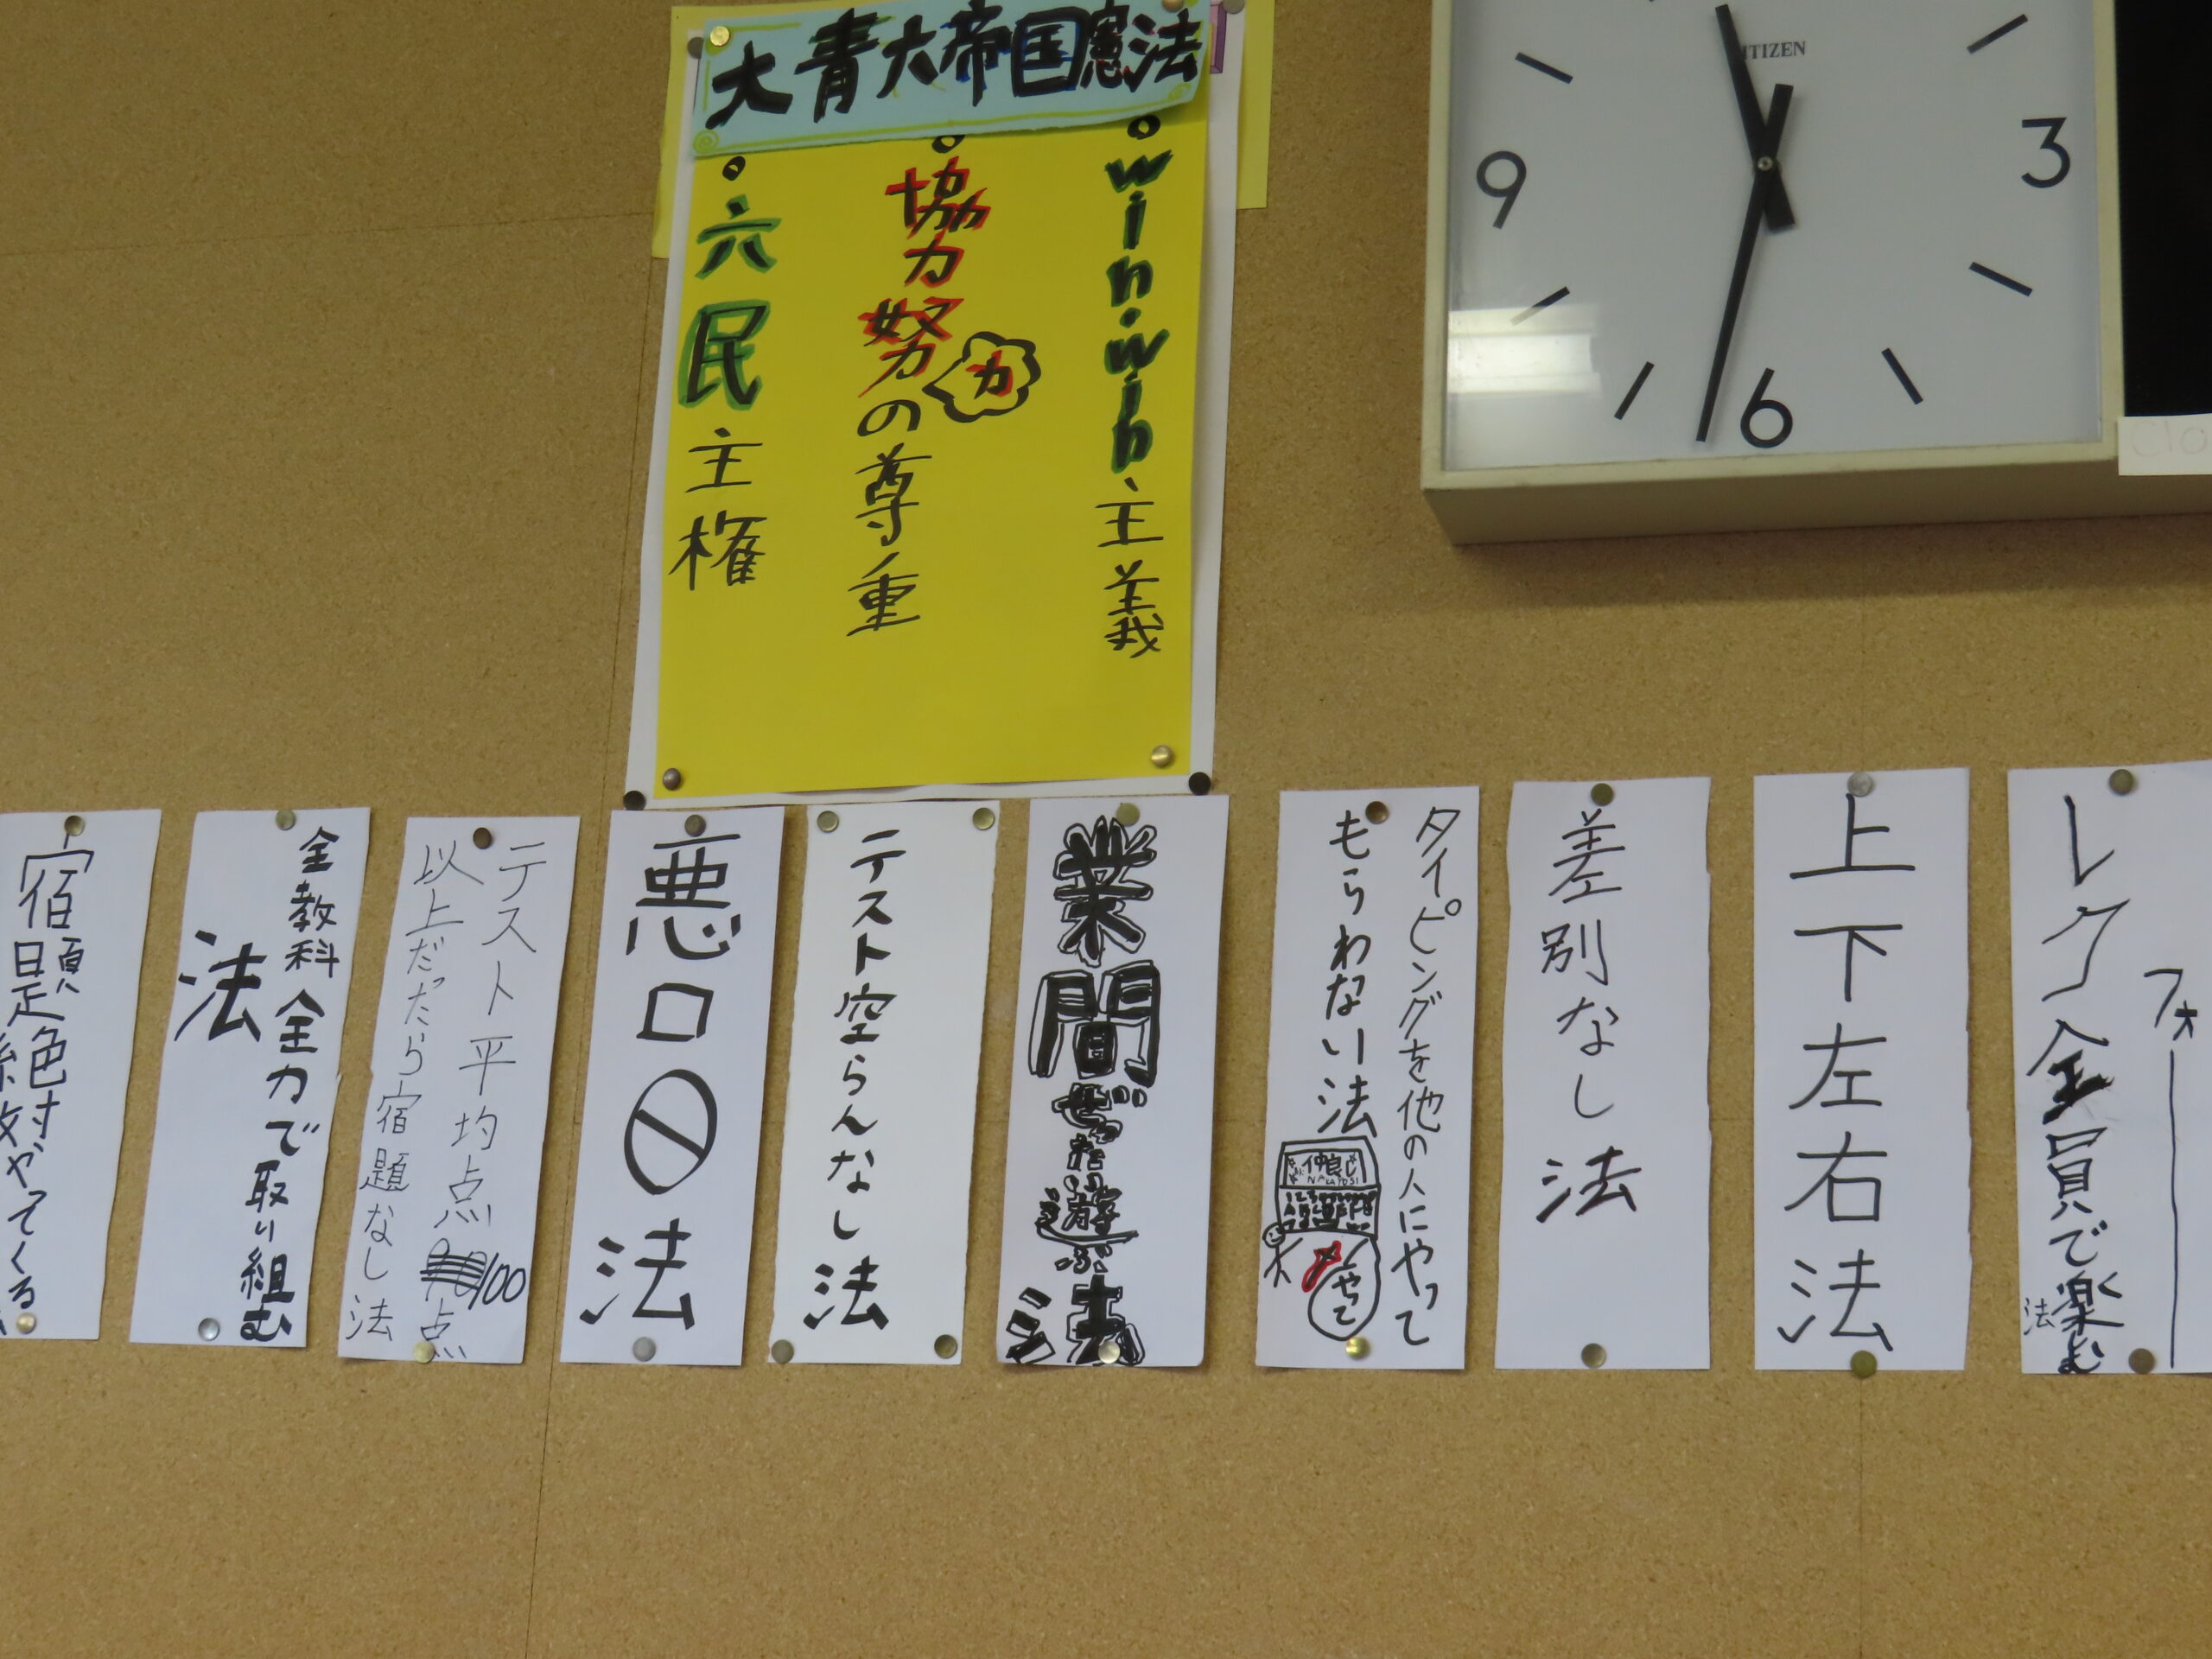 大青大帝国憲法
・win・win主義
・協力努力の尊重
力
・六民主権
CITIZEN
3
6
9
レク全員で楽む
法
フォー
上下左右法
差別なし法
タイピングを他の人にやって
もらわない法
仲良し
やって
業間ぜったい遊ぶ
法
テスト空らんなし法
悪口〇法
テスト平均点100点
以上だったら宿題なし法
全教科全力で取り組む
法
宿題絶対やってくる